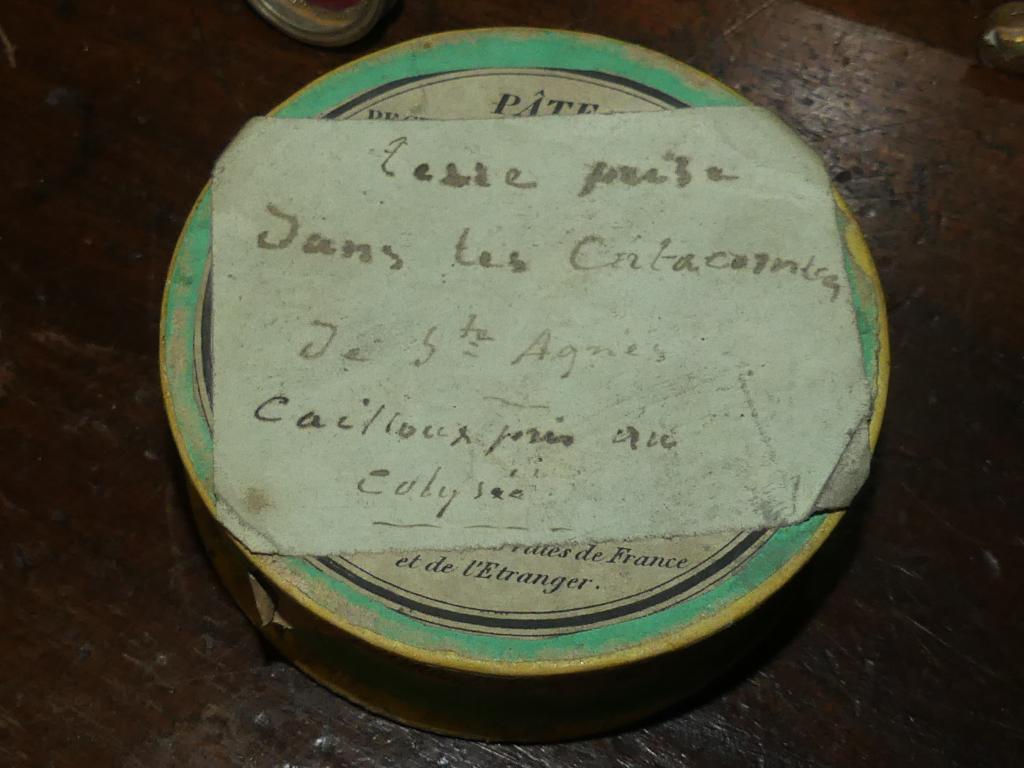 PÂTE
terre prise
Dans les Catacombes
De Ste Agnès
Cailloux pris au
Colysée
de France
et de l'Etranger.